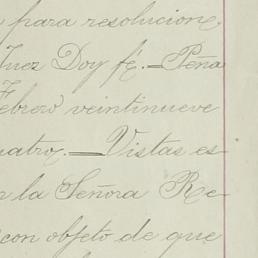 para resolucione
Juez Doy fé.—Peña
Febrero veintinueve
uatro.—Vistas es
la Señora Re
con objeto de que